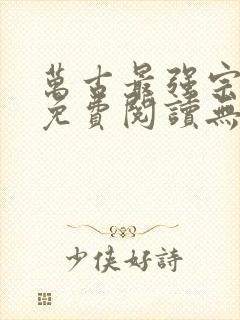 萬古最强宗
免費閱讀無
少侠好詩